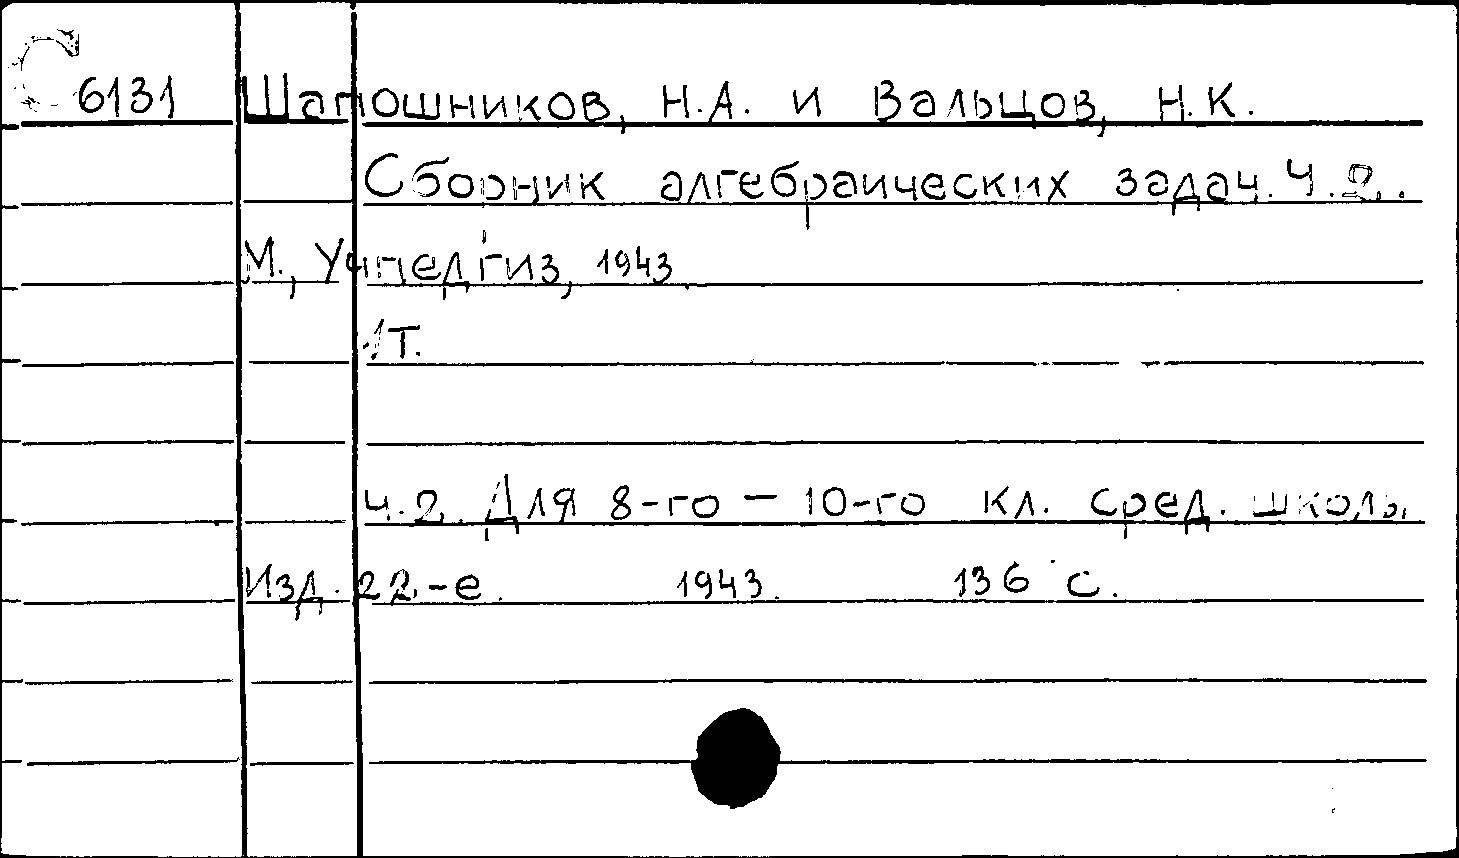 С 6131 Шапошников, Н.А. и Вальцов, Н.К.
Сборник алгебраических задач. Ч.2..
М., Учпедгиз, 1943.
1т.
Ч.2. Для 8-го — 10-го кл. сред. школы.
Изд. 22-е. 1943. 136 с.